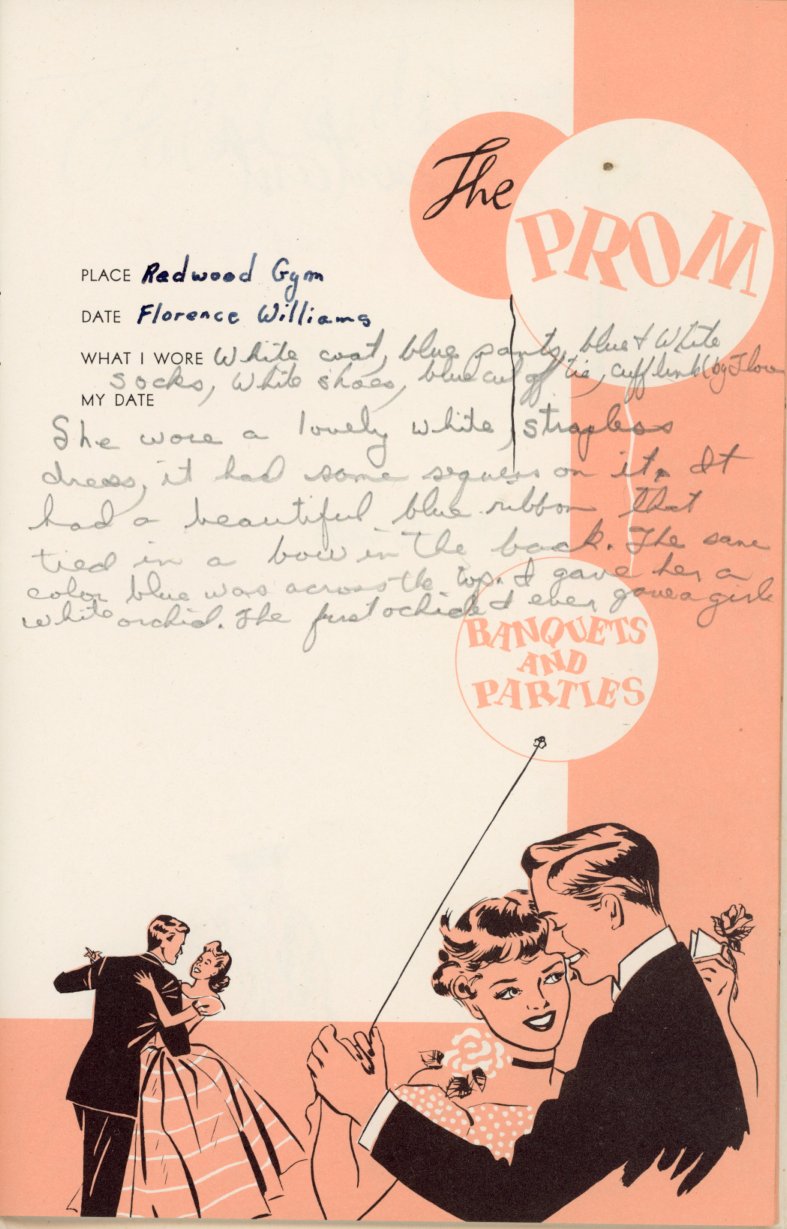 The
PROM
PLACE Redwood Gym
DATE Florence Williams
WHAT I WORE White coat, blue pants, blue & White
socks, White shoes, blue tie, cuff link (by
MY DATE
She wore a lovely white strapless
dress, it had some seguess on it. It
had a beautiful blue ribbon that
tied in a bow in the back. The same
color blue was across the top. I gave her a
white orchid. The first ochide I ever gave a girl
BANQUETS
AND
PARTIES